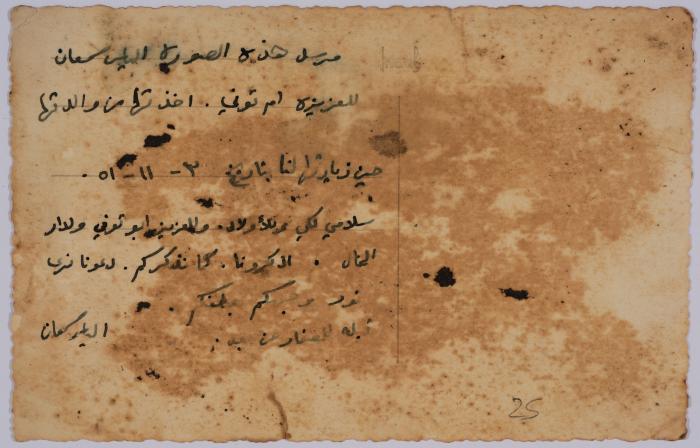 مرسل هذه الصورة الياس سمعان
للعزيزة ام توفيق . اخذتها من والدتها
حين زيارتها لنا بتاريخ ٣ - ١١ - ٥١ .
سلامي لكي وللأولاد . وللعزيز ابو توفيق ولدار
الخال . اذكرونا . كما نذكركم . دعونا نرى
نور وجهكم
قبلة للصغار عن بعد .
الياس سمعان
25